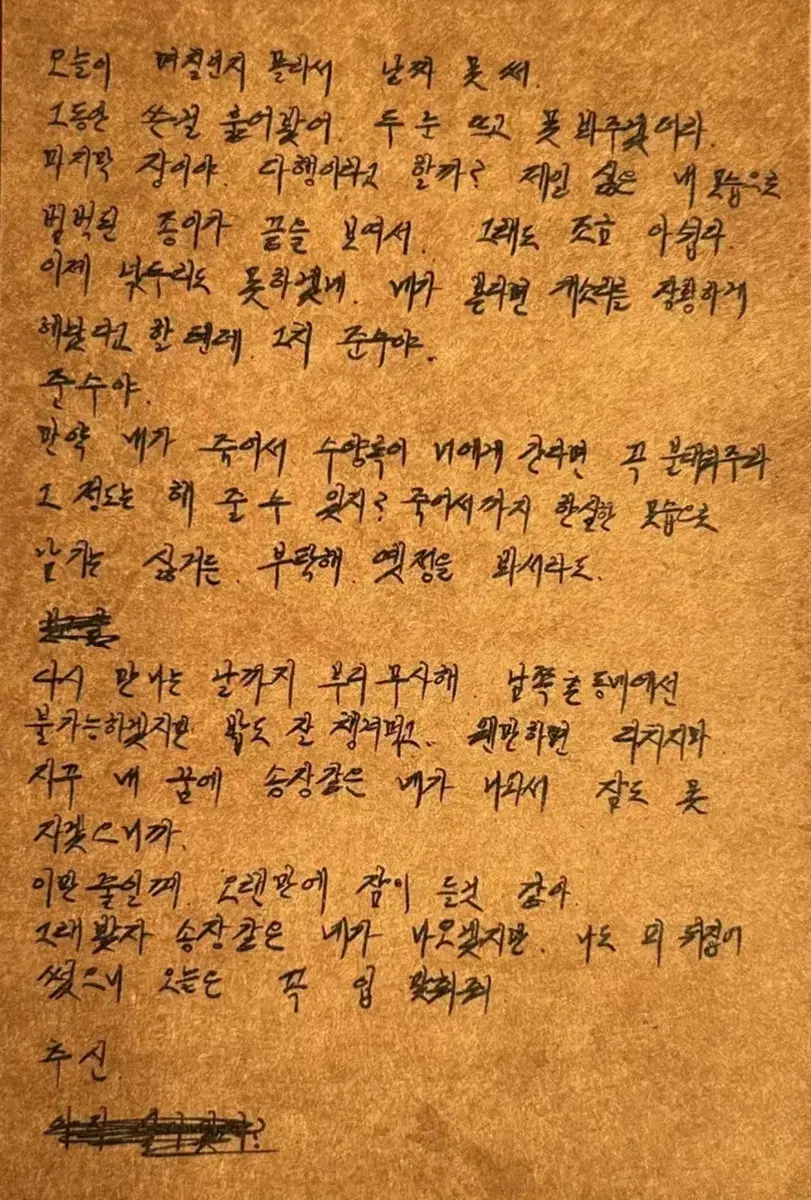 오늘이 며칠인지 몰라서 날짜 못 써.
그동안 쓴걸 훑어봤어. 두 눈 뜨고 못 봐주겠더라.
마지막 장이야. 다행이라고 할까? 제일 싫은 내 모습으로
범벅된 종이가 끝을 보여서. 그래도 조금 아쉽다.
이제 넋두리도 못하겠네. 네가 본다면 개소리를 장황하게
해놨다고 할 텐데. 그치 준수야.
준수야.
만약 내가 죽어서 수양록이 너에게 간다면 꼭 불태워주라
그 정도는 해 줄 수 있지? 죽어서까지 한심한 모습으로
남기는 싫거든. 부탁해. 옛정을 봐서라도.
다시 만나는 날까지 부디 무사해. 남쪽 출동대에선
불가능하겠지만 밥도 잘 챙겨먹고. 웬만하면 다치지마
자꾸 내 꿈에 송장같은 네가 나와서 잠도 못
자겠으니까.
이만 줄일게. 오랜만에 잠이 들것 같아.
그래봤자 송장같은 네가 나오겠지만. 나도 뭐 뒤집어
썼으니 오늘은 꼭 입 맞춰줘
추신.